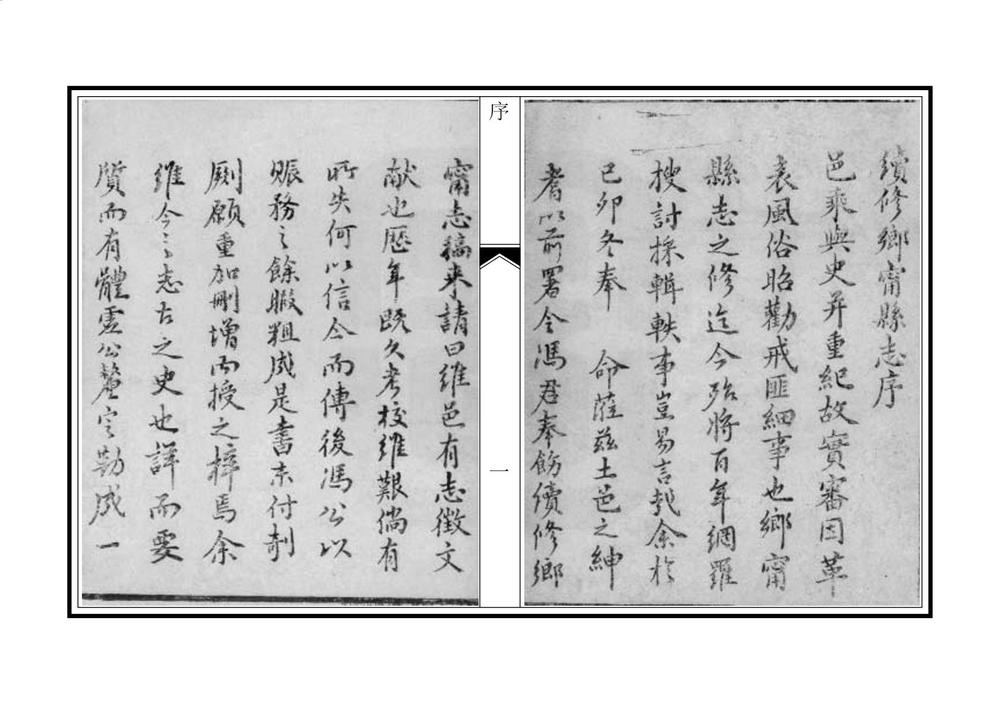 續修鄉甯縣志序
邑乘與史并重紀故實審因革
表風俗昭勸戒匪細事也鄉甯
縣志之修迄今殆將百年網羅
搜討採輯軼事豈易言哉余於
己卯冬奉　命蒞茲土邑之紳
耆以前署令馮君奉飭續修鄉
序
一
甯志稿来請曰維邑有志徵文
献也歷年既久考校維艱倘有
所失何以信今而傳後馮公以
賬務之餘暇粗成是書未付剞
劂願重加刪增而授之梓焉余
維今之志古之史也詳而要
質而有體 公釐定勒成一